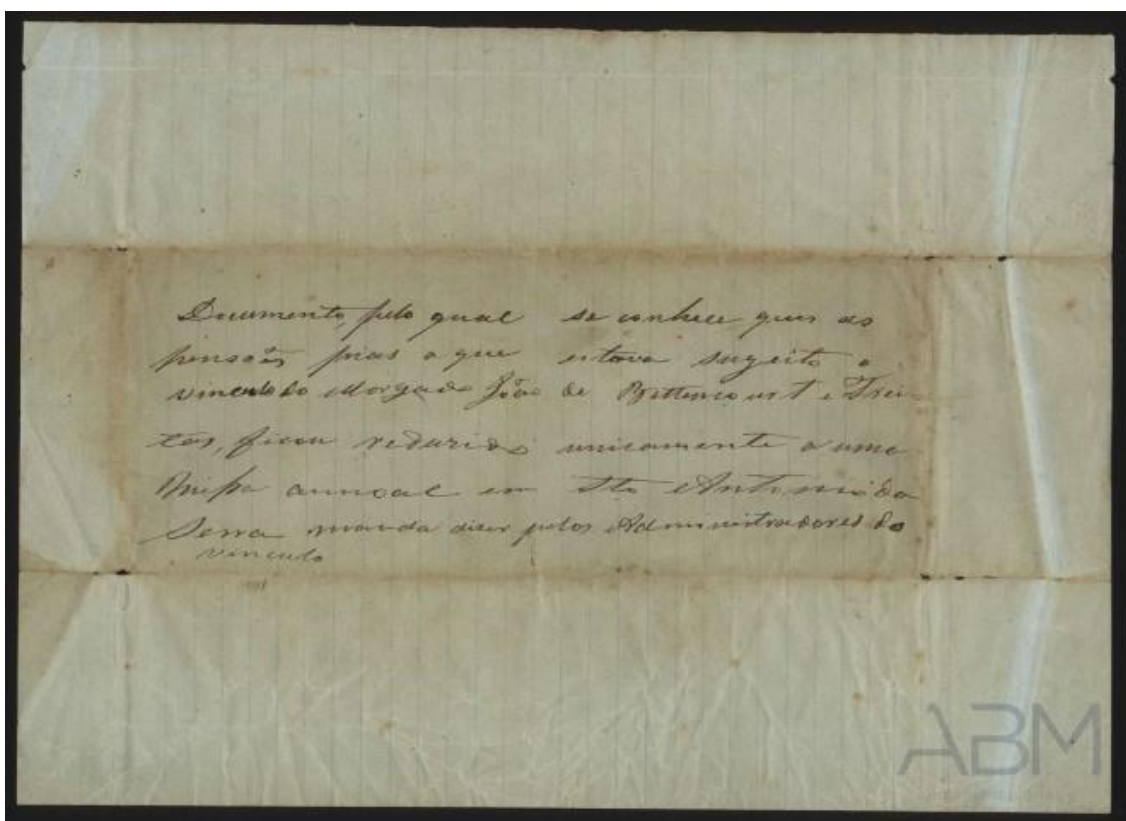 Documento, pelo qual se conhece que as
pensões pias a que estava sugeito o
vinculo do Morgado João de Bettencourt e Frei-
tas, ficou redusido unicamente a uma
Missa annoal em Sto Antonio da
Serra manda diser pelos Administradores do
vinculo
ABM